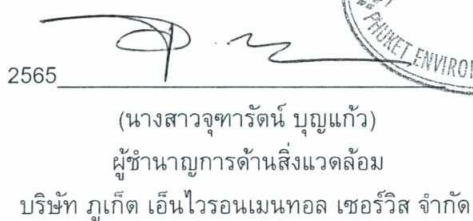 PHUKET ENVIRON
2565
(นางสาวจุฑารัตน์ บุญแก้ว)
ผู้ชำนาญการด้านสิ่งแวดล้อม
บริษัท ภูเก็ต เอ็นไวรอนเมนทอล เซอร์วิส จำกัด